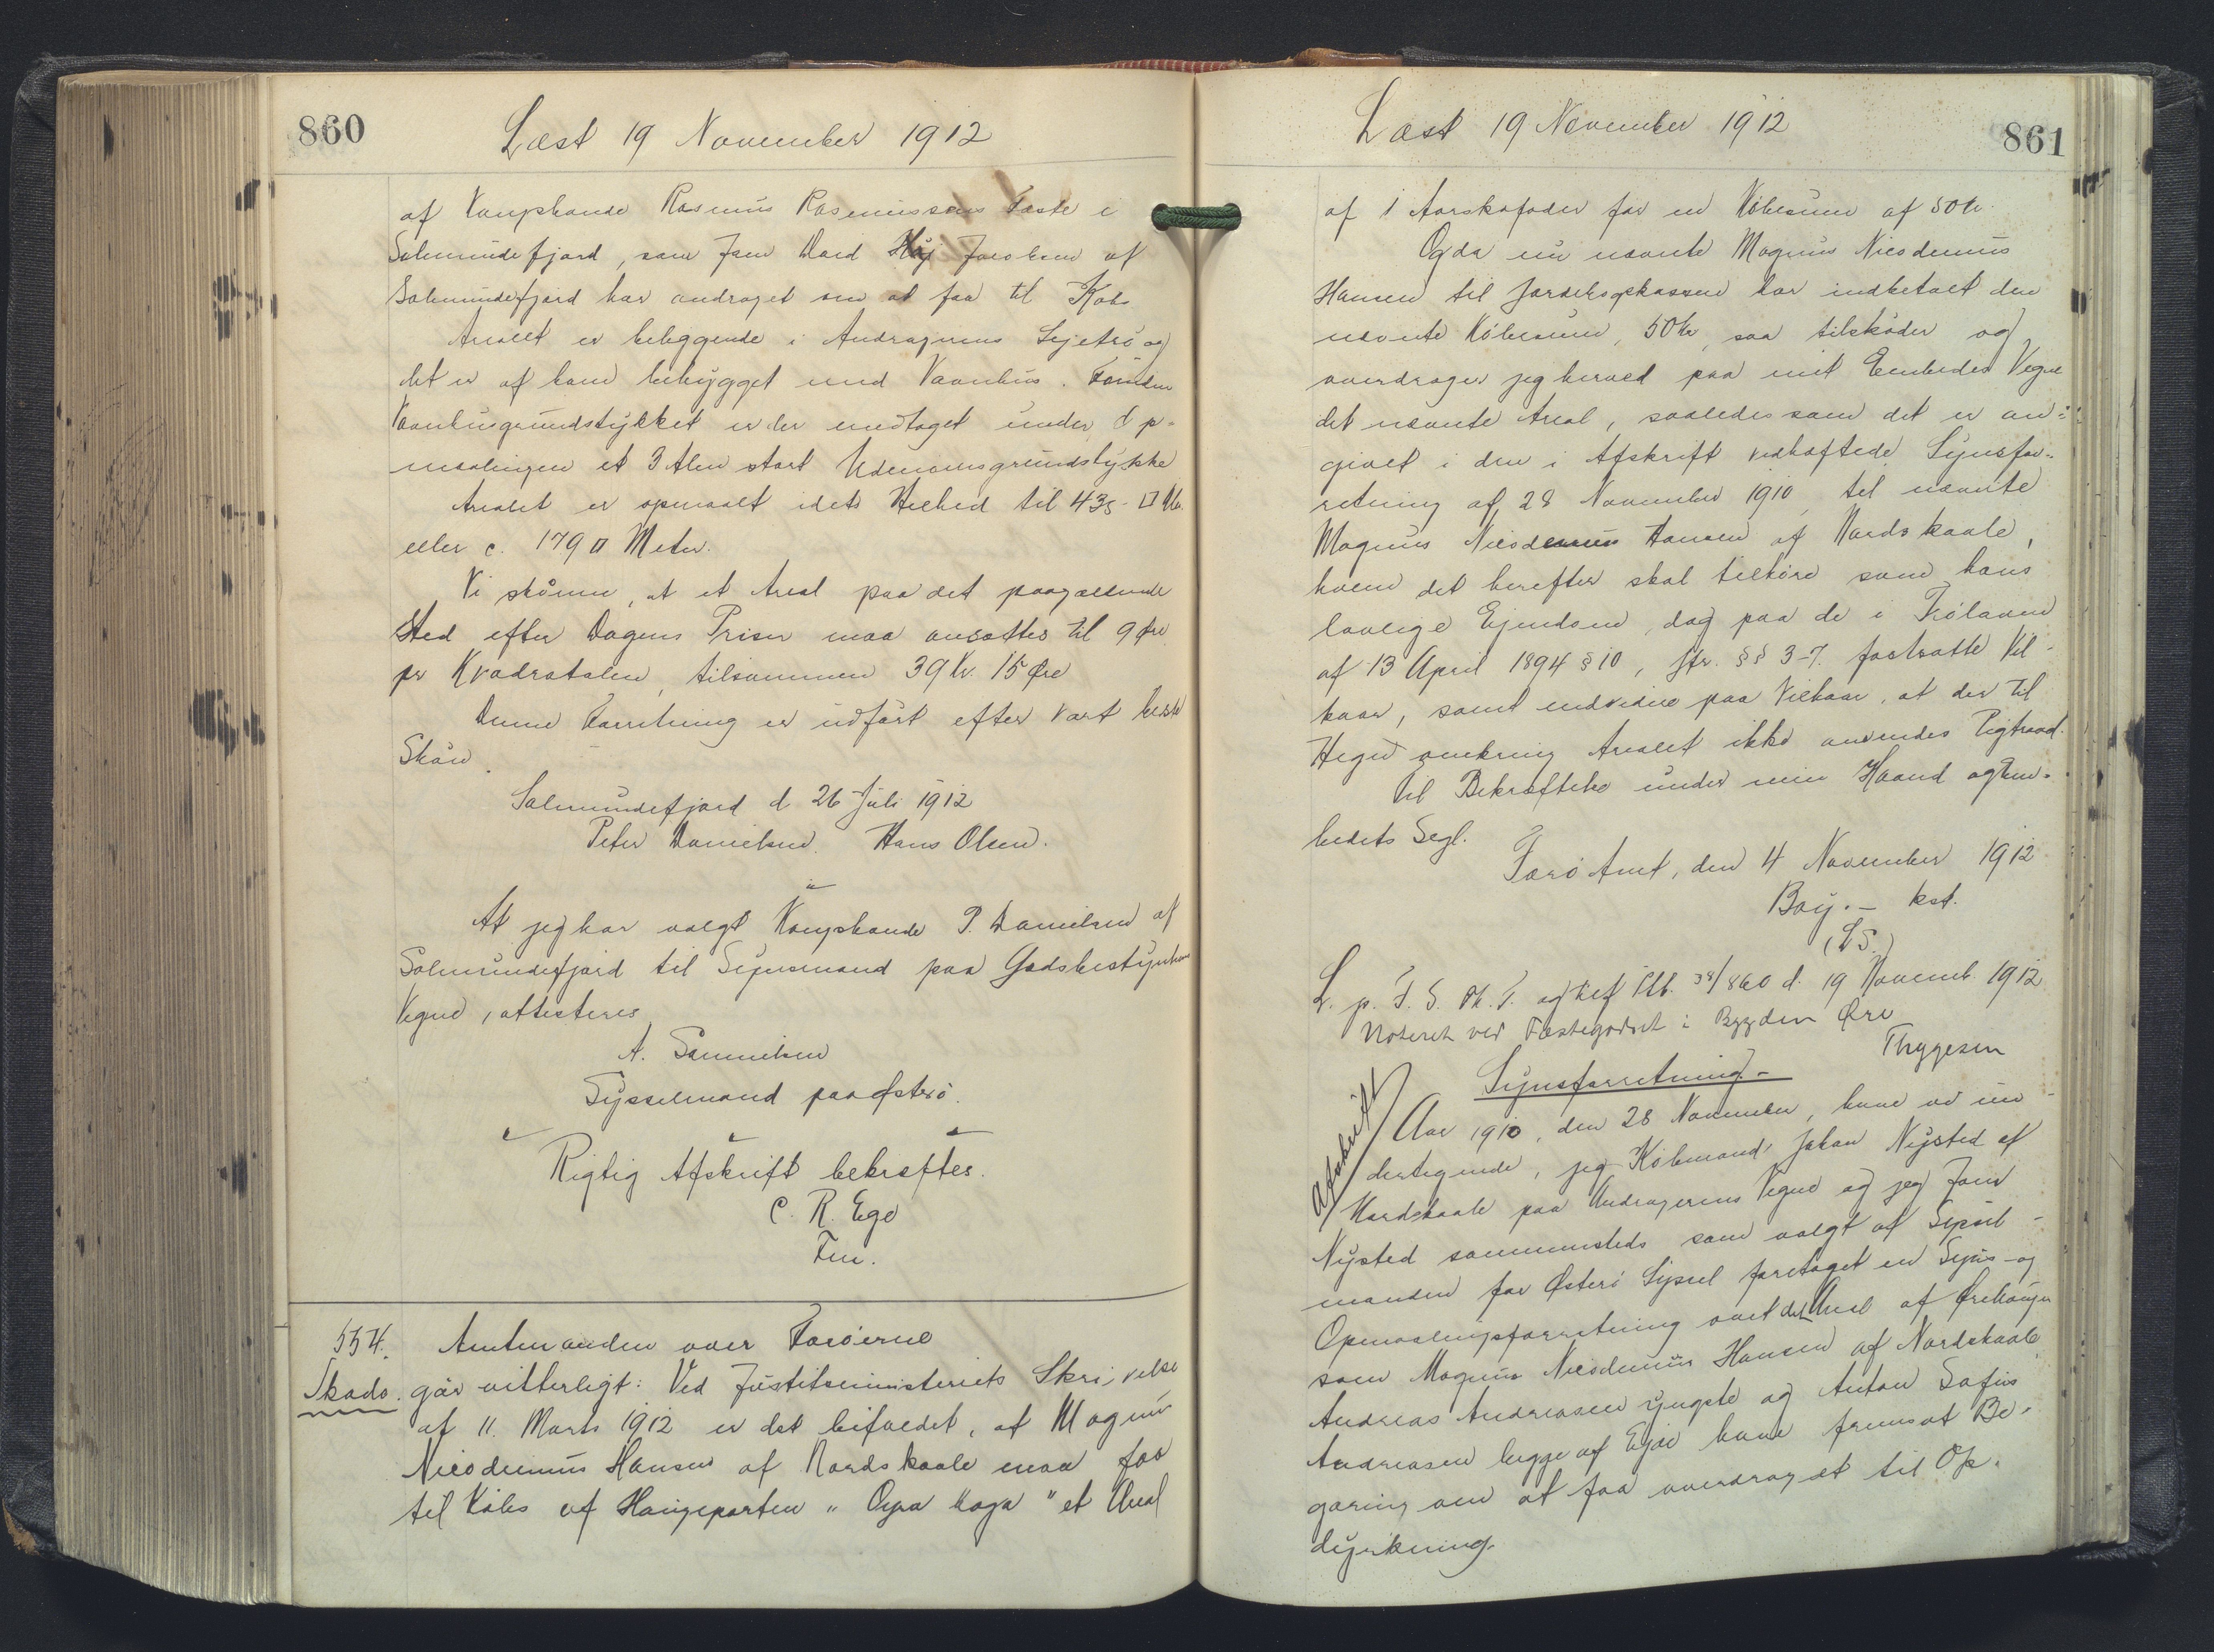 860
Læst 19 November 1912
af Kongsbonde Rasmus Rasmussens Fæste i
Salmundefjord, som Jens David Høj Jacobsen af
Salmundefjord har andraget om at faa til Købs
Arealet er beliggende i Andragerens Lejetrø og
det er af ham bebygget med Vaanhus. Foruden
Vaanhusgrundstykket er der medtaget under Op-
maalingen et 3 Alen stort Udenomsgrundstykke
Arealet er opmaalt i dets Helhed til 435 □ Al.
eller c. 179 □ Meter.
Vi skönne, at et Areal paa det paagældende
Sted efter Dagens Priser maa ansættes til 9 Øre
pr Kvadratalen, tilsammen 39 Kr. 15 Øre
Denne Forretning er udført efter vort bedste
Skøn.
Salmundefjord d 26 Juli 1912
Peter Danielsen. Hans Olsen.
At jeg har valgt Kongsbonde P. Danielsen af
Salmundefjord til Synsmand paa Godsbestyrelsens
Vegne, attesteres
A. Samuelsen
Sysselmand paa Østerø.
Rigtig Afskrift bekræftes.
C. R. Ege
Fm.
554. Amtmanden over Færøerne
Skøde. gör vitterligt: Ved Justitsministeriets Skrivelse
af 11. Marts 1912 er det bifaldet, at Magnus
Nicodemus Hansen af Nordskaale maa faa
til Købs af Haugeparten "Ogra Haga" et Areal
861
Læst 19 November 1912
af 1 Aarskofoder for en Købesum af 50 Kr.
Og da nu nævnte Magnus Nicodemus
Hansen til Jordebogskassen har indbetalt den
nævnte Købesum, 50 Kr, saa tilskøder og
overdrager jeg herved paa mit Embedes Vegne
det nævnte Areal, saaledes som det er an-
givet i den i Afskrift vedhæftede Synsfor-
retning af 28 November 1910, til nævnte
Magnus Nicodemus Hansen af Nordskaale,
hvem det herefter skal tilhøre som hans
lovlige Ejendom, dog paa de i Frøloven
af 13 April 1894 § 10, jfr. §§ 3-7. fastsatte Vil-
kaar, samt endvidere paa Vilkaar, at der til
Hegn omkring Arealet ikke anvendes Pigtraad.
Til Bekræftelse under min Haand og Em-
bedets Segl.
Færö Amt, den 4 November 1912
Bay.- kst.
(L S.)
L. p. F. S. O. T. og Ref Ptb. 38/860 d. 19 Novemb. 1912
Noteret ved Fæstegodset i Bygden Øre
Thygesen
Afskrift
Synsforretning.-
Aar 1910, den 28 November, have vi un-
dertegnede, jeg Købmand Johan Nysted af
Nordskaale paa Andragerens Vegne og jeg Joen
Nysted sammesteds som valgt af Syssel-
manden for Østerø Syssel foretaget en Syns- og
Opmaalingsforretning over det Areal af Ørehaugen
som Magnus Nicodemus Hansen af Nordskaale,
Andreas Andreasen yngste og Anton Sofus
Andreasen begge af Ejde have fremsat Be-
gæring om at faa overdraget til Op-
dyrkning.